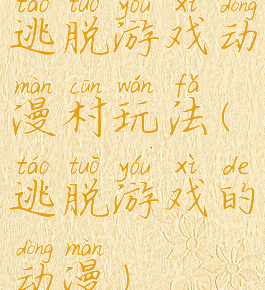 táo tuō yóu xì dòng
逃脱游戏动
màn cūn wán fǎ
漫村玩法(
táo tuō yóu xì de
逃脱游戏的
dòng màn
动漫)